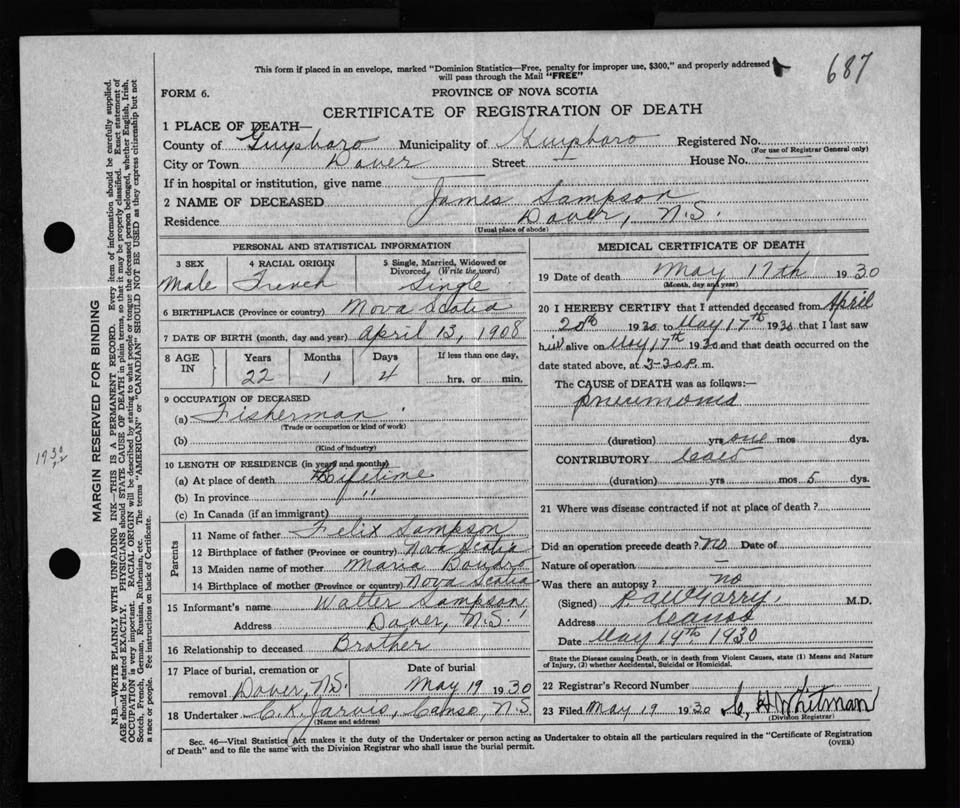 This form if placed in an envelope, marked "Dominion Statistics—Free, penalty for improper use, $300," and properly addressed
will pass through the Mail "FREE"
687
FORM 6.
PROVINCE OF NOVA SCOTIA
CERTIFICATE OF REGISTRATION OF DEATH
1 PLACE OF DEATH—
County of Guysboro Municipality of Guysboro Registered No.
(For use of Registrar General only)
City or Town Dover Street — House No. —
If in hospital or institution, give name —
2 NAME OF DECEASED James Sampson
Residence Dover, N.S.
(Usual place of abode)
PERSONAL AND STATISTICAL INFORMATION
3 SEX 4 RACIAL ORIGIN 5 Single, Married, Widowed or
Divorced, (Write the word)
Male French Single
6 BIRTHPLACE (Province or country) Nova Scotia
7 DATE OF BIRTH (month, day and year) April 13, 1908
8 AGE IN Years Months Days If less than one day,
22 1 4 hrs. or min.
9 OCCUPATION OF DECEASED
(a) Fisherman
(Trade or occupation or kind of work)
(b)
(Kind of industry)
10 LENGTH OF RESIDENCE (in years and months)
(a) At place of death Lifetime
(b) In province "
(c) In Canada (if an immigrant)
Parents
11 Name of father Felix Sampson
12 Birthplace of father (Province or country) Nova Scotia
13 Maiden name of mother Maria
14 Birthplace of mother (Province or country) Nova Scotia
15 Informant's name Walter Sampson
Address Dover, N.S.
16 Relationship to deceased Brother
17 Place of burial, cremation or Date of burial
removal Dover, N.S. May 19 1930
18 Undertaker C. K. Jarvis, Canso, N.S.
(Name and address)
MEDICAL CERTIFICATE OF DEATH
19 Date of death May 17th 1930
(Month, day and year)
20 I HEREBY CERTIFY that I attended deceased from April
20th 1930 to May 17th 1930 that I last saw
him alive on May 17th 1930 and that death occurred on the
date stated above, at 3-30 P. m.
The CAUSE of DEATH was as follows:—
Pneumonia
(duration) yrs one mos dys.
CONTRIBUTORY Cold
(duration) yrs mos 5 dys.
21 Where was disease contracted if not at place of death?
Did an operation precede death? No Date of
Nature of operation —
Was there an autopsy? no
(Signed) M.D.
Address Canso
Date May 19th 1930
State the Disease causing Death, or in death from Violent Causes, state (1) Means and Nature
of Injury, (2) whether Accidental, Suicidal or Homicidal.
22 Registrar's Record Number
23 Filed May 19 1930 C. H. Whitman
(Division Registrar)
Sec. 46—Vital Statistics Act makes it the duty of the Undertaker or person acting as Undertaker to obtain all the particulars required in the "Certificate of Registration
of Death" and to file the same with the Division Registrar who shall issue the burial permit.
(OVER)
MARGIN RESERVED FOR BINDING
N.B.—WRITE PLAINLY WITH UNFADING INK—THIS IS A PERMANENT RECORD. Every item of information should be carefully supplied.
AGE should be stated EXACTLY. PHYSICIANS should STATE CAUSE OF DEATH in plain terms, so that it may be properly classified. Exact statement of
OCCUPATION is very important. RACIAL ORIGIN will be described by stating to what people or tongue the deceased person belonged, whether English, Irish,
Scotch, French, German, Russian, Ruthenian, etc. The terms "AMERICAN" or "CANADIAN SHOULD NOT BE USED as they express citizenship but not
a race or people. Fee instructions on back of Certificate.
1930
22